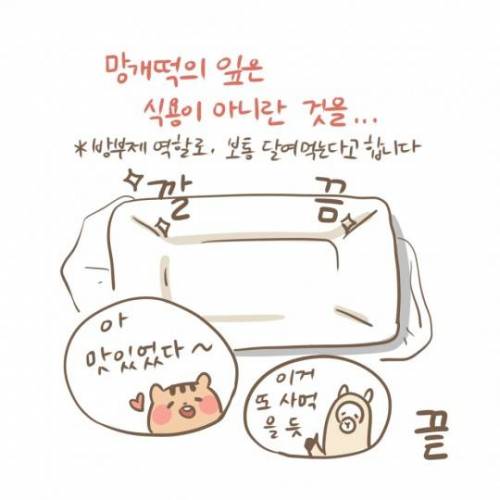 망개떡의 잎은
식용이 아니란 것을...
*방부제 역할로, 보통 달여먹는다고 합니다
깔 끔
아
맛있었다~
이거
또 사먹
을 듯
끝